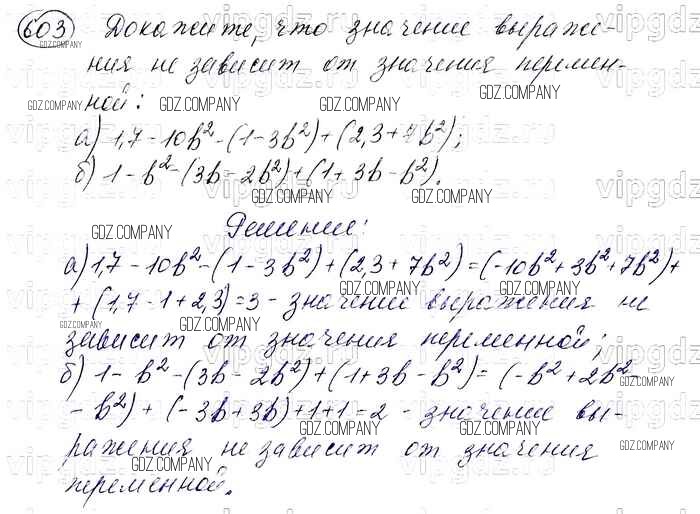 603 Докажите, что значение выраже-
ния не зависит от значения перемен-
ной:
а) 1,7 - 10b² - (1 - 3b²) + (2,3 + 7b²);
б) 1 - b² - (3b - 2b²) + (1 + 3b - b²).
Решение:
а) 1,7 - 10b² - (1 - 3b²) + (2,3 + 7b²) = (-10b² + 3b² + 7b²) +
+ (1,7 - 1 + 2,3) = 3 - значение выражения не
зависит от значения переменной;
б) 1 - b² - (3b - 2b²) + (1 + 3b - b²) = (-b² + 2b² -
- b²) + (-3b + 3b) + 1 + 1 = 2 - значение вы-
ражения не зависит от значения
переменной.
GDZ.COMPANY
vipgdz.ru